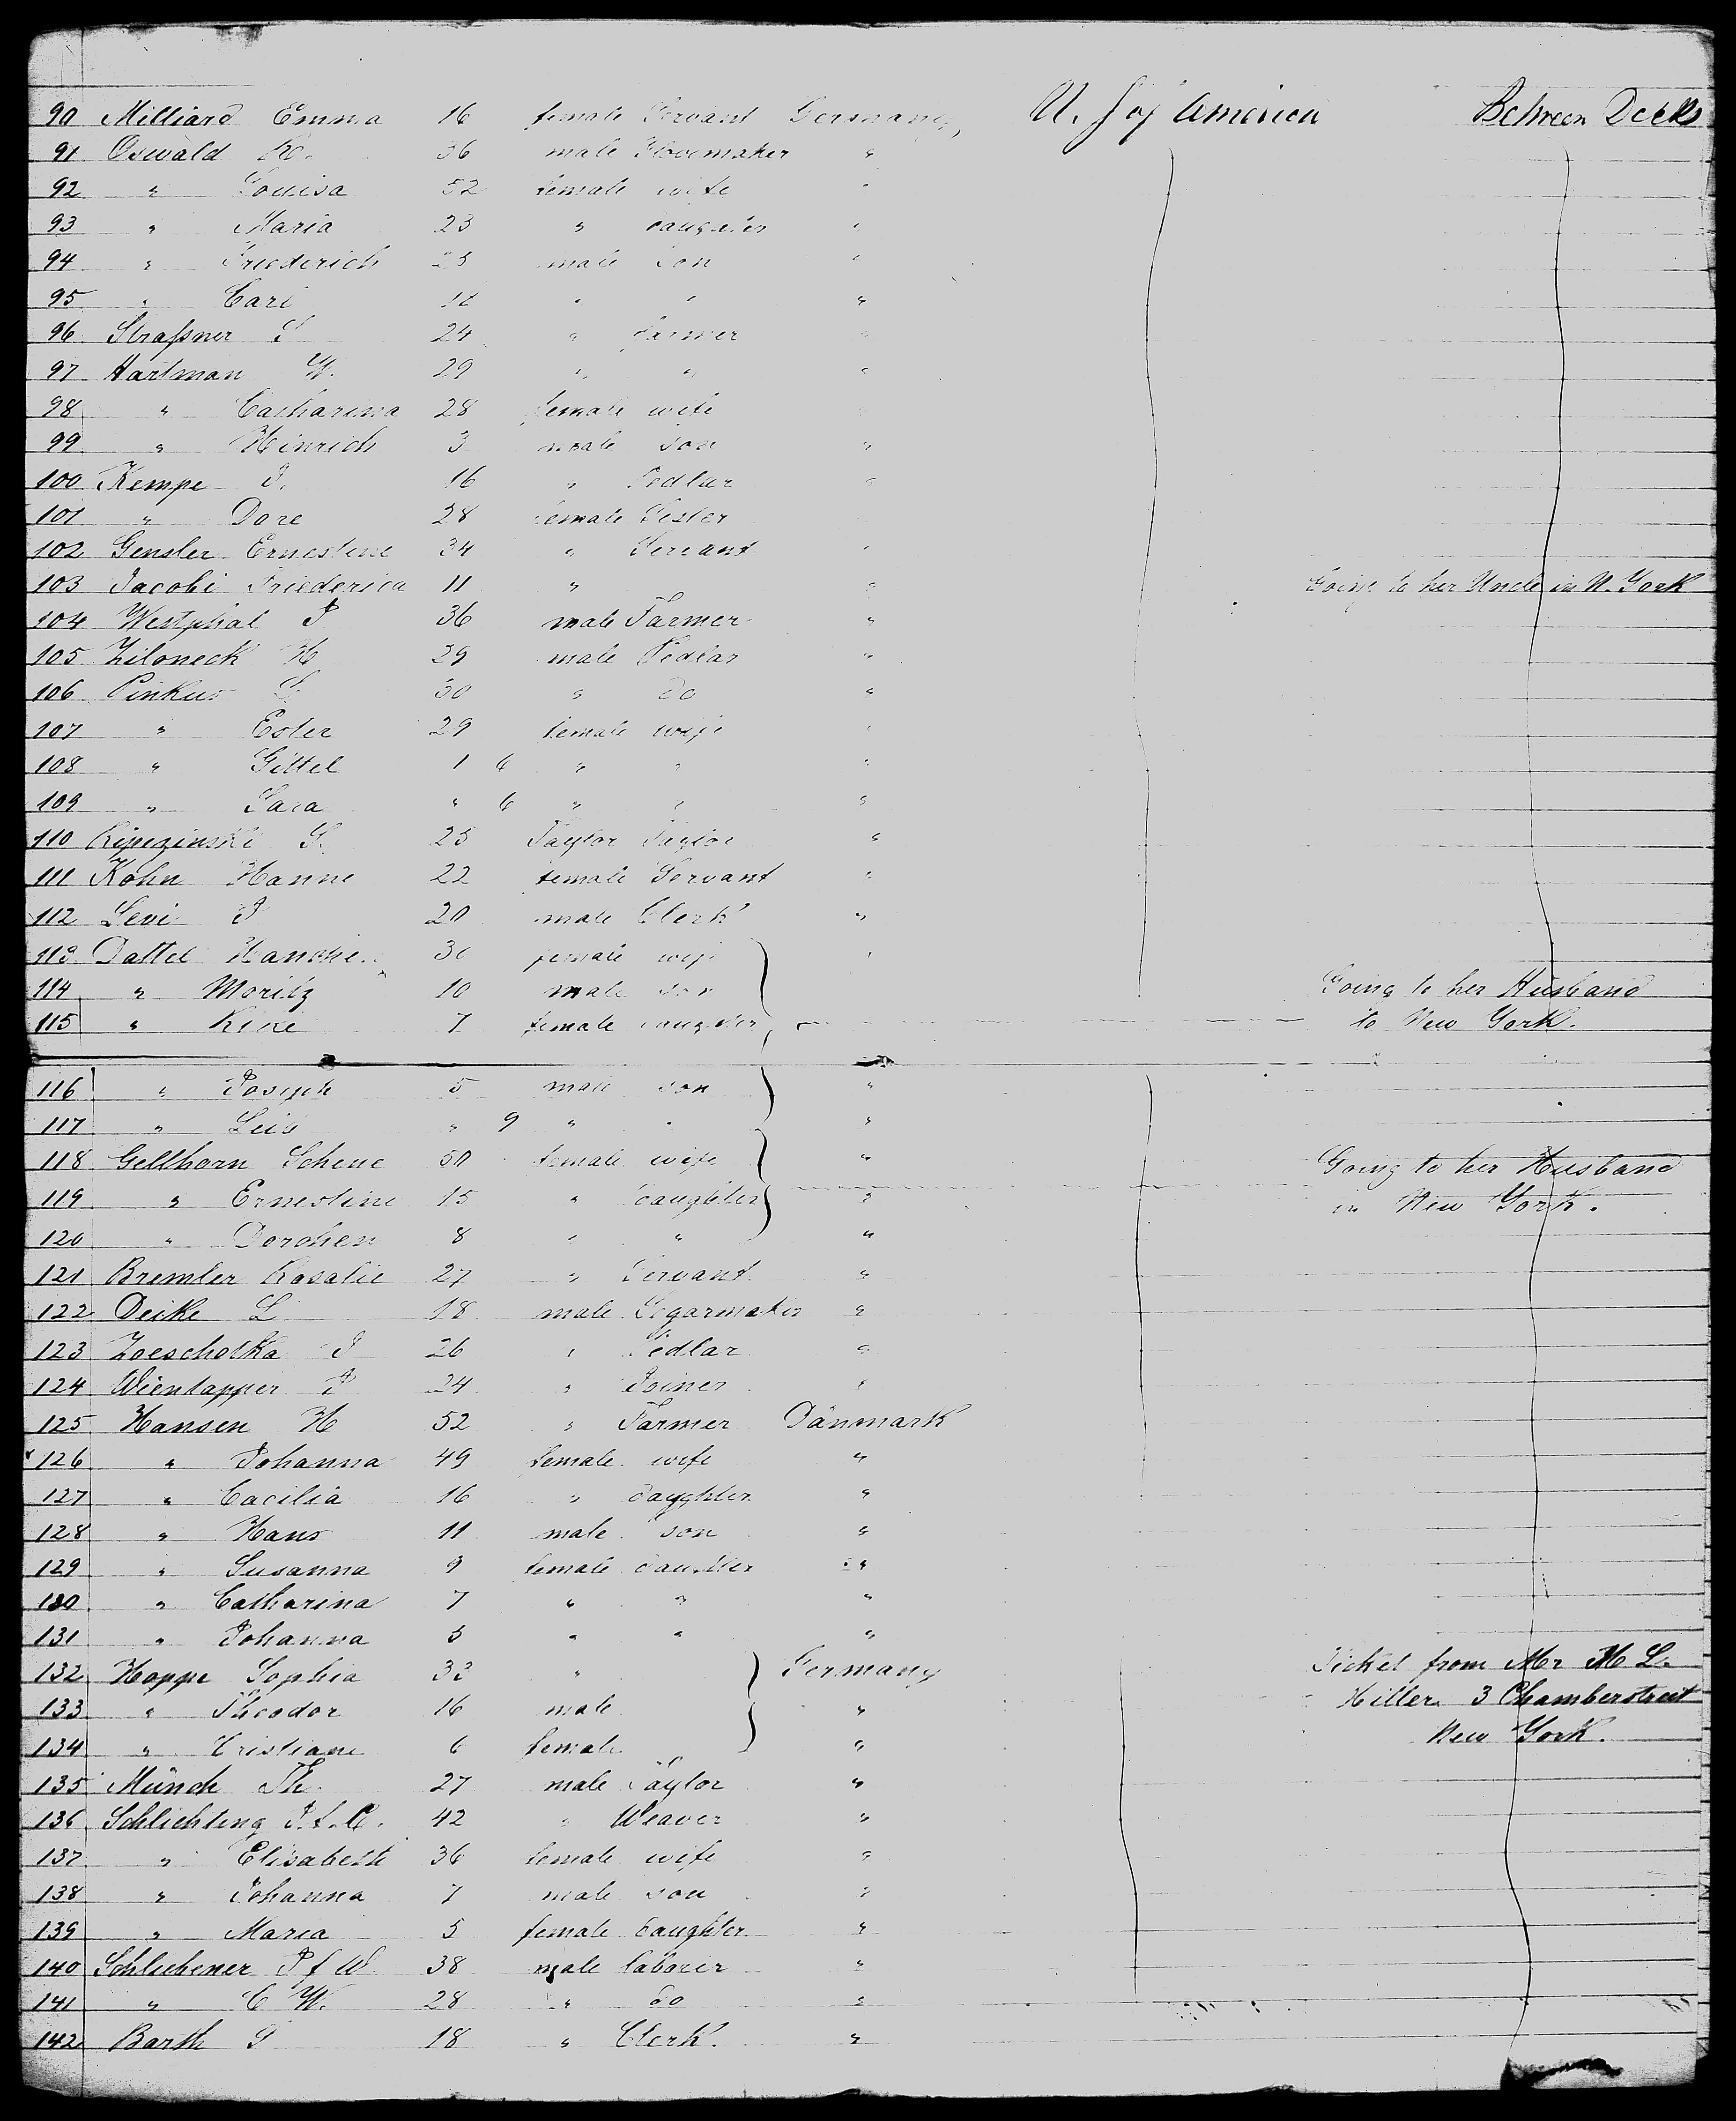 90 Milliard Emma 16 female Servant Germany, U. S of America Between Decks
91 Oswald 36 male "
92 " Louisa 52 female wife "
93 " Maria 23 " daughter "
94 " Friederich male son "
95 " Carl 18 " " "
96 Straßner 24 " Farmer "
97 Hartman W. 29 " " "
98 " Catharina 28 female wife
99 " Hinrich 3 male son "
100 Kempe J. 16 " Pedlar "
101 " Dore 28 female Sister
102 Gensler Ernestine 34 " Servant "
103 Jacobi Friederica 11 " " Going to her Uncle in N. York
104 Westphal J 36 male Farmer "
105 Ziloneck H 29 male Pedlar "
106 Pinkus 30 " do "
107 " Ester 29 female wife "
108 " Gittel 1 6 " " "
109 " Sara " 6 " " "
110 25 Taylor Taylor "
111 Kohn Hanne 22 female Servant "
112 Levi J 20 male Clerk "
113 Dattel 30 female wife "
114 " Moritz 10 male son Going to her Husband
115 " Rike 7 female daughter to New York.
116 " Joseph 5 male son "
117 " " 9 " " "
118 Gellhorn Schene 50 female wife " Going to her Husband
119 " Ernestine 15 " daughter " in New York.
120 " Dorchen 8 " " "
121 Bremler Rosalie 27 " Servant "
122 Deike L 18 male Segarmaker "
123 Zoeschotka J 26 " Pedlar "
124 Wientapper J 24 " Joiner "
125 Hansen H 52 " Farmer Dänmark
126 " Johanna 49 female wife "
127 " Cacilia 16 " daughter "
128 " Hans 11 male son "
129 " Susanna 9 female daughter "
130 " Catharina 7 " " "
131 " Johanna 5 " " "
132 Hoppe Sophia 33 " Germany Ticket from Mr M L.
133 " Theodor 16 male " Hiller 3 Chamberstreet
134 " Cristiane 6 female " New York.
135 Münch Th. 27 male Taylor "
136 Schlichting J. f. C. 42 " Weaver "
137 " Elisabeth 36 female wife "
138 " Johanna 7 male son "
139 " Maria 5 female daughter "
140 Schlichener J f W 38 male laborer "
141 " C W. 28 " do "
142 Barth 18 " Clerk. "